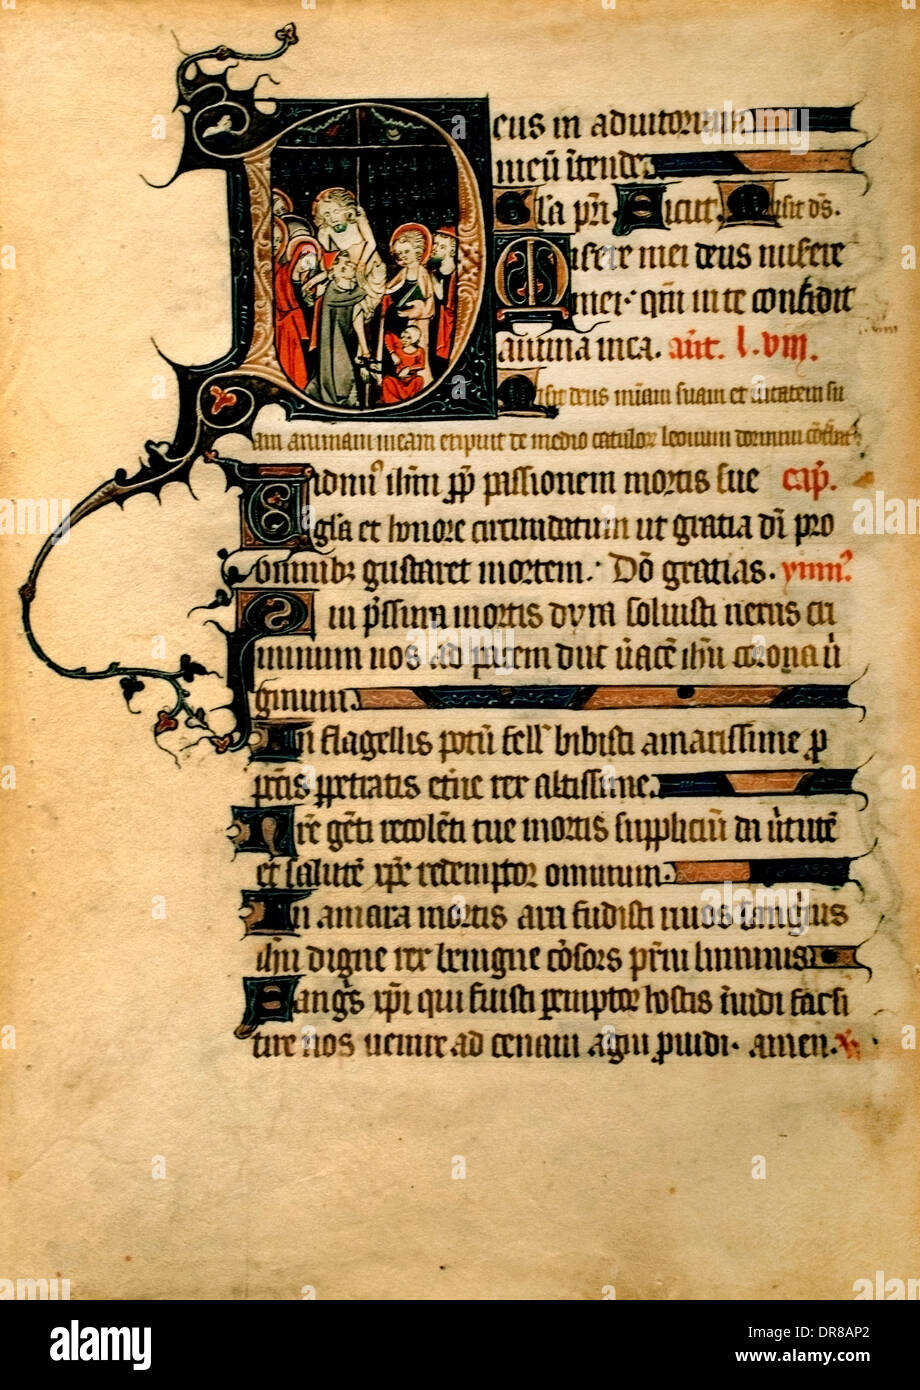 Deus in adiutorium
meū ītende
Gl̄a pr̄i. Sicut. Misit ds̄.
Misere mei deus misere
mei. qm̄ in te confidit
anima mea. añt. l.viij.
Misit deus mīam suam et ūitatem su
am animam meam eripuit de medio catulor leonum dormiui
Vidimꝰ ihm̄ ꝓp passionem mortis sue cap̄.
gl̄a et honore circundatum ut gratia dī pro
omnibꝫ gustaret mortem. Dō gratias. ymnꝰ
Qui p̄ssura mortis dym soluisti nexus cri
minum nos ad patem duc ūacē ihū corona ūi
ginum.
In flagellis potū fell bibisti amarissime ꝓ
petis ꝑpetratis etne rex altissime.
Nr̄e gēti recolēti tue mortis suppliciū da ūtutē
et salutē xp̄e redemptor omnium.
In amara mortis ara fudisti riuos sanguis
ihū digne rex benigne cōsors pr̄ni luminis
Sangs xp̄i qui fuisti peremptor hostis īuidi fac si
tire nos uenire ad cenam agni ꝓuidi. amen. x̄
alamy
a
Image ID: DR8AP2
www.alamy.com